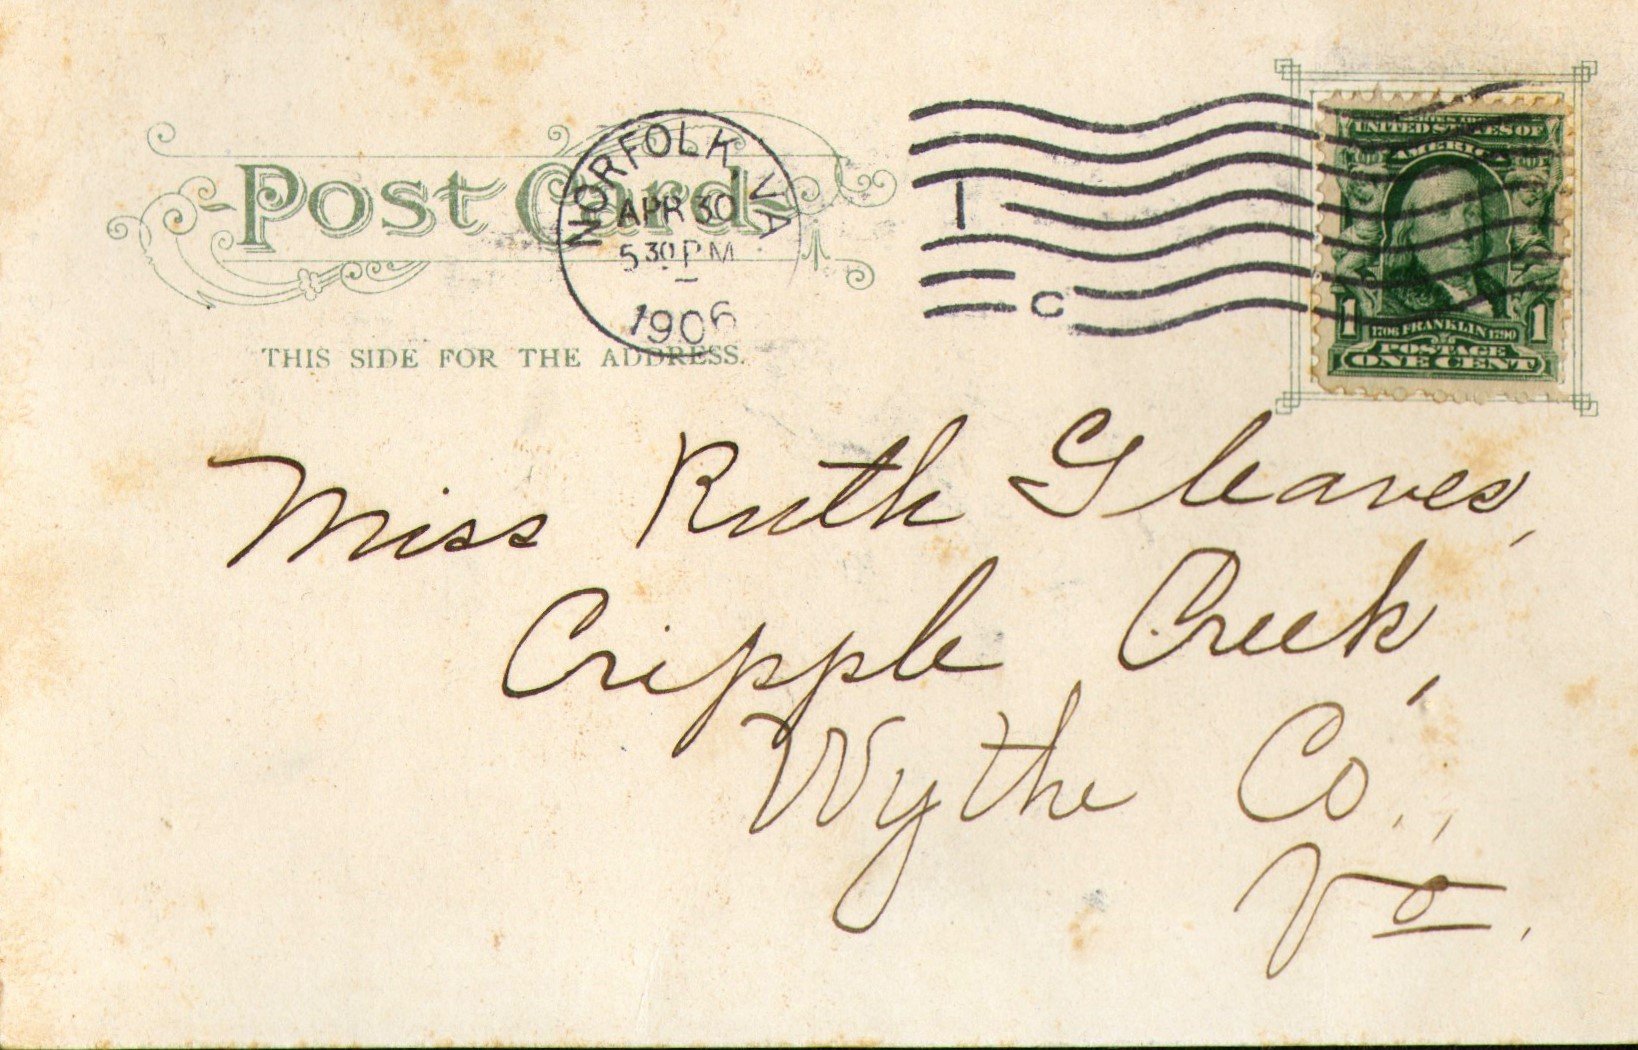 Post Card
NORFOLK, VA
APR 30
5 30 PM
1906
1
C
THIS SIDE FOR THE ADDRESS.
UNITED STATES OF
AMERICA
1 1
1706 FRANKLIN 1790
POSTAGE
ONE CENT
Miss Ruth Gleaves,
Cripple Creek,
Wythe Co.,
Va.